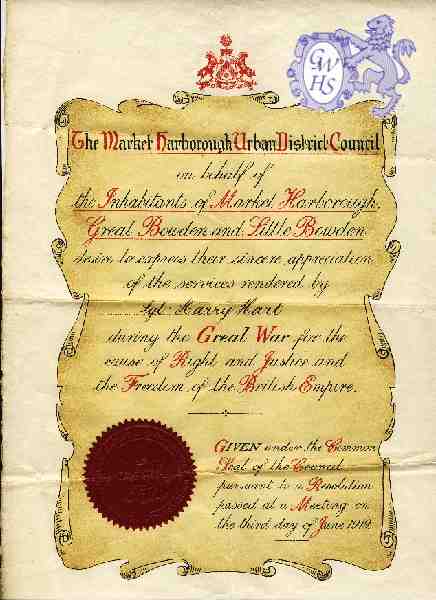 GW
HS
The Market Harborough Urban District Council
on behalf of
the Inhabitants of Market Harborough,
Great Bowden and Little Bowden
desire to express their sincere appreciation
of the services rendered by
Sgt. Harry Hart
during the Great War for the
cause of Right and Justice and
the Freedom of the British Empire.
GIVEN under the Common
Seal of the Council
pursuant to a Resolution
passed at a Meeting on
the third day of June 1919.